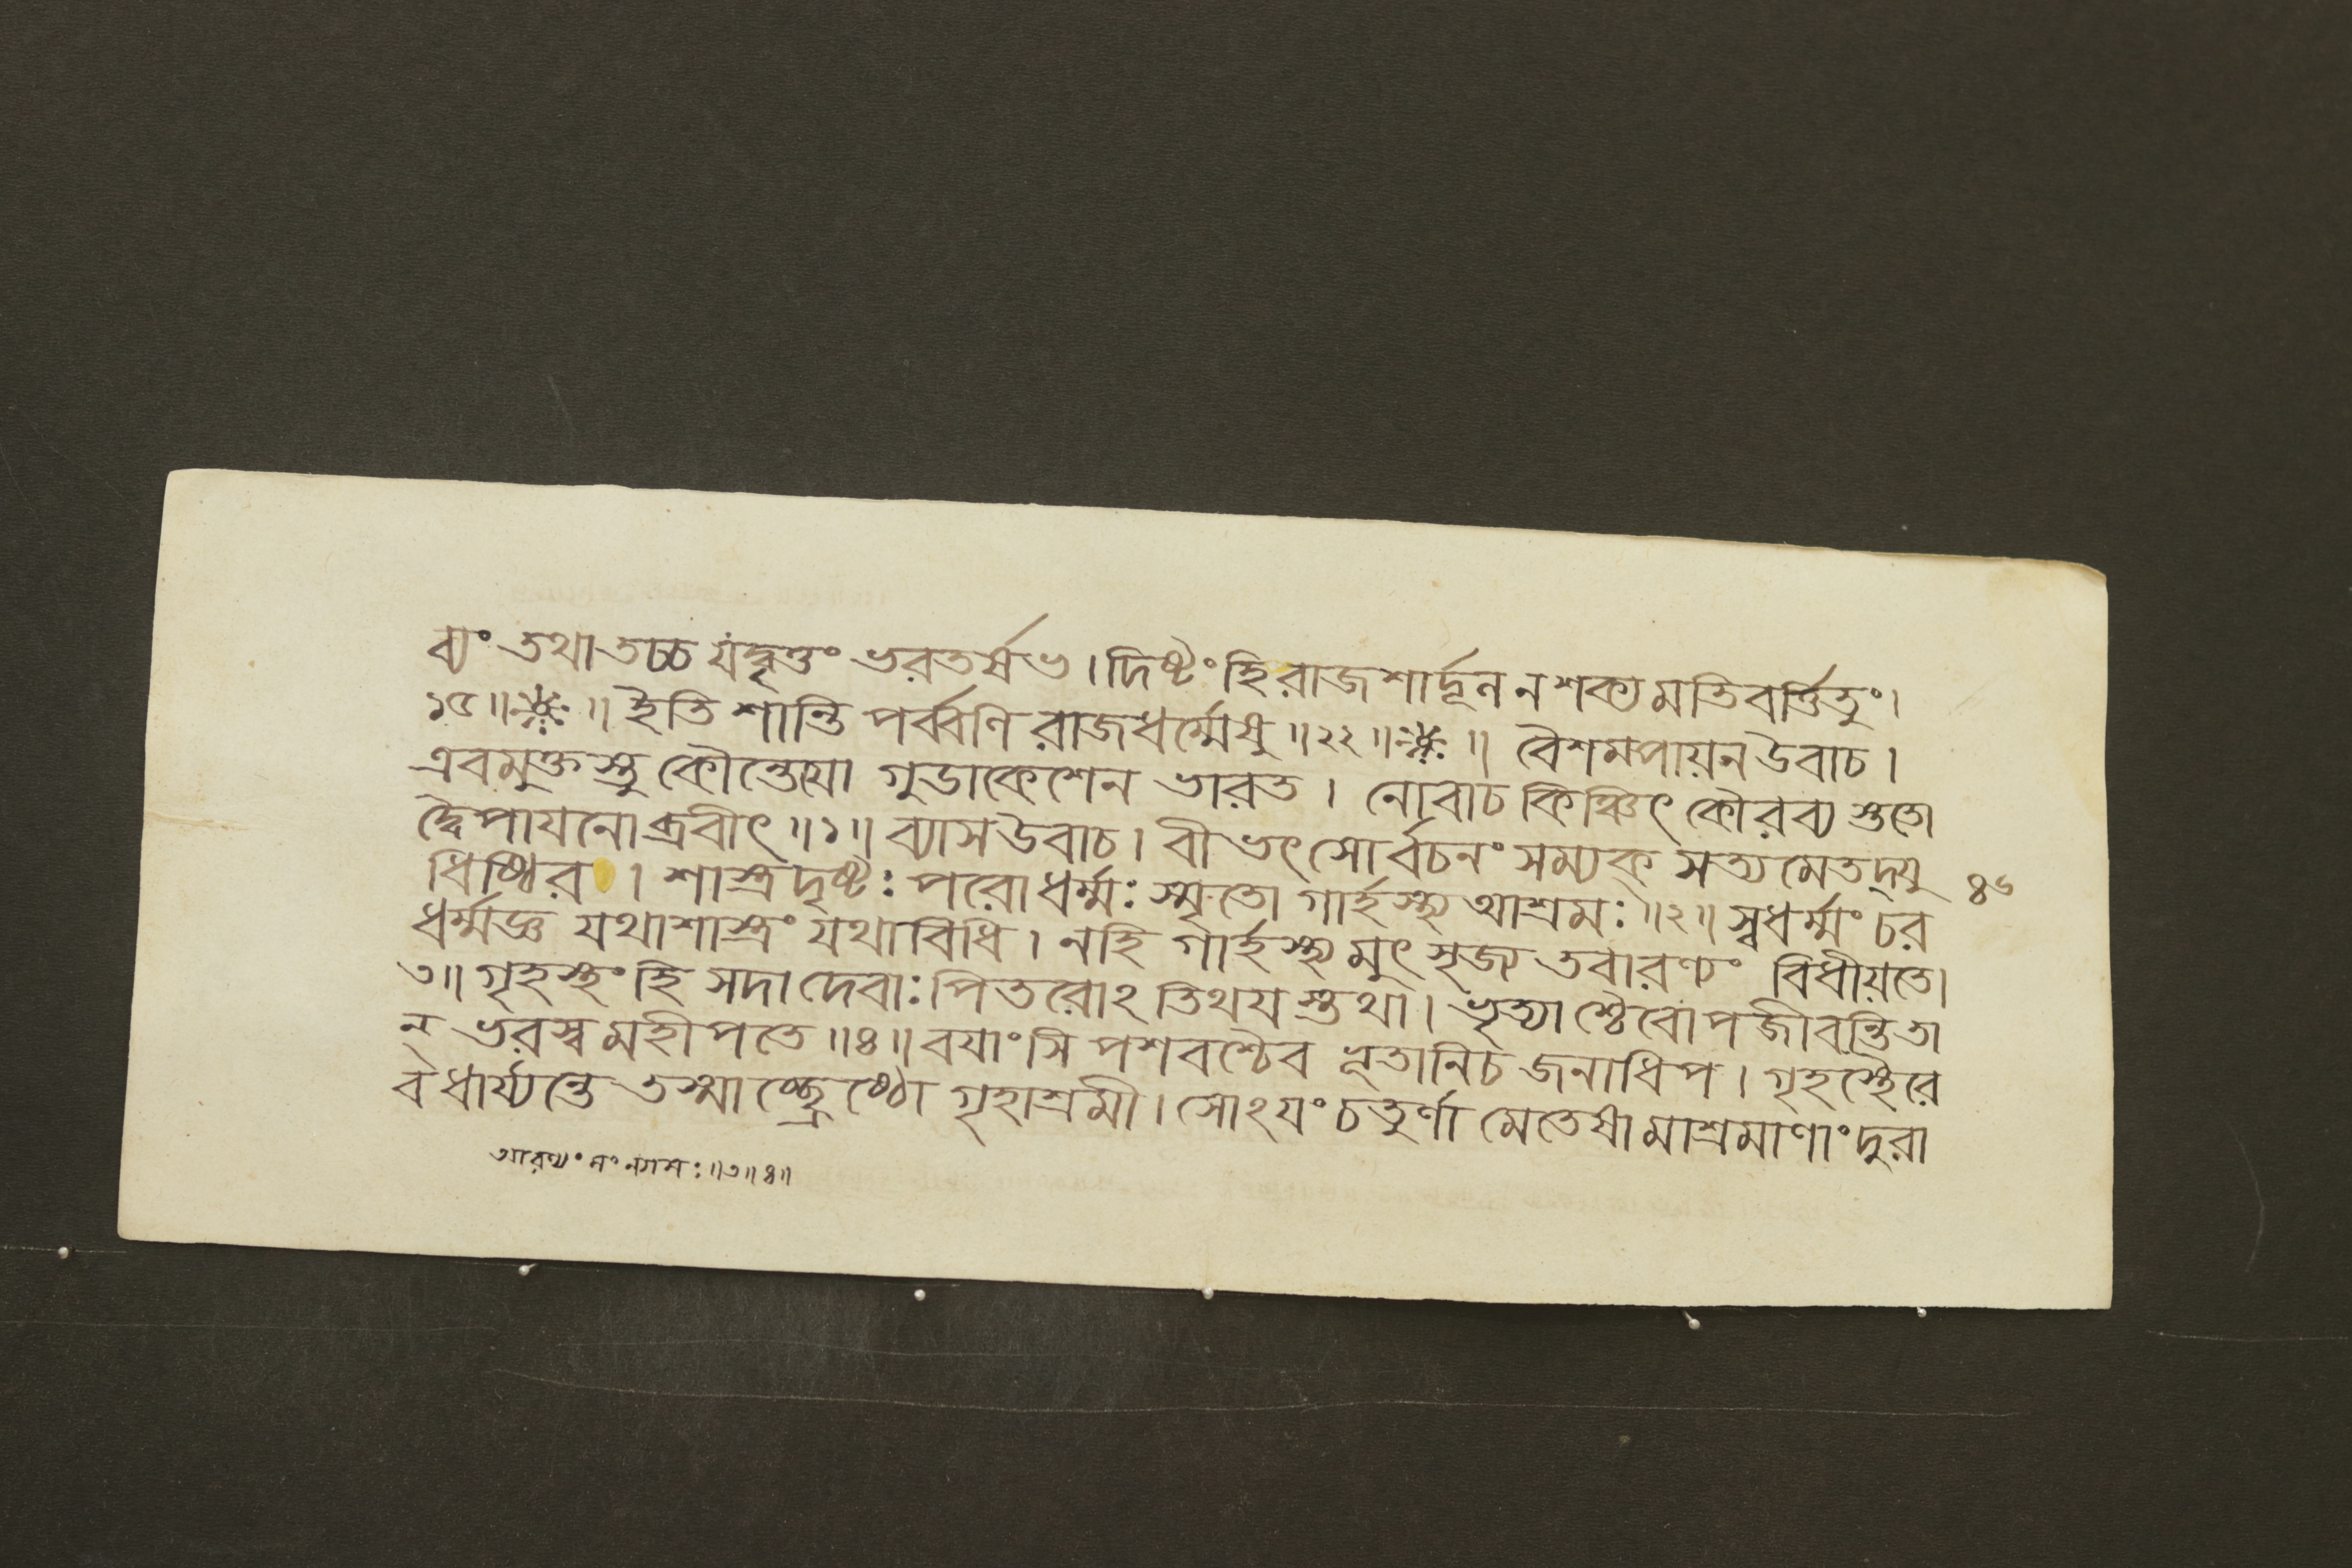 ব্যং তথা তচ্চ যদ্বৃত্তং ভরতর্ষভ। দিষ্টং হি রাজশার্দ্দূল ন শক্যমতিবর্ত্তিতুং।
১৫॥ ॥ ইতি শান্তি পর্ব্বণি রাজধর্ম্মেষু॥২২॥ ॥ বৈশমপায়ন উবাচ।
এবমুক্তস্তু কৌন্তেযো গুডাকেশেন ভারত। নোবাচ কিঞ্চিৎ কৌরব্য স্ততো
দ্বৈপাযনোব্রবীৎ॥১॥ ব্যাস উবাচ। বীভৎসোর্বচনং সম্যক্ সত্যমেতদ্যু
ধিষ্ঠির। শাস্ত্রদৃষ্টঃ পরোধর্ম্মঃ স্মৃতো গার্হস্থ্য আশ্রমঃ॥২॥ স্বধর্ম্মং চর
৪৬
ধর্ম্মজ্ঞ যথাশাস্ত্রং যথাবিধি। নহি গার্হস্থ্যমুৎসৃজ্য তবারণ্যং বিধীয়তে।
৩॥ গৃহস্থং হি সদা দেবাঃ পিতরোঽতিথযস্তথা। ভৃত্যাশ্চৈবোপজীবন্তি তা
ন্ ভরস্ব মহীপতে॥৪॥ বযাংসি পশবশ্চৈব ভূতানি চ জনাধিপ। গৃহস্থৈরে
ব ধার্য্যন্তে তস্মাচ্ছ্রেষ্ঠো গৃহাশ্রমী। সোঽযং চতুর্ণামেতেষামাশ্রমাণাং দুরা
আরণ্যং সংন্যাসঃ॥৩॥৪॥